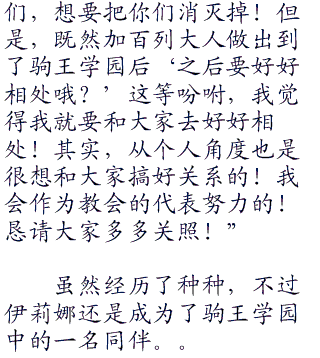 们，想要把你们消灭掉！但
是，既然加百列大人做出到
了驹王学园后‘之后要好好
相处哦？’这等吩咐，我觉
得我就要和大家去好好相
处！其实，从个人角度也是
很想和大家搞好关系的！我
会作为教会的代表努力的！
恳请大家多多关照！”
虽然经历了种种，不过
伊莉娜还是成为了驹王学园
中的一名同伴。。